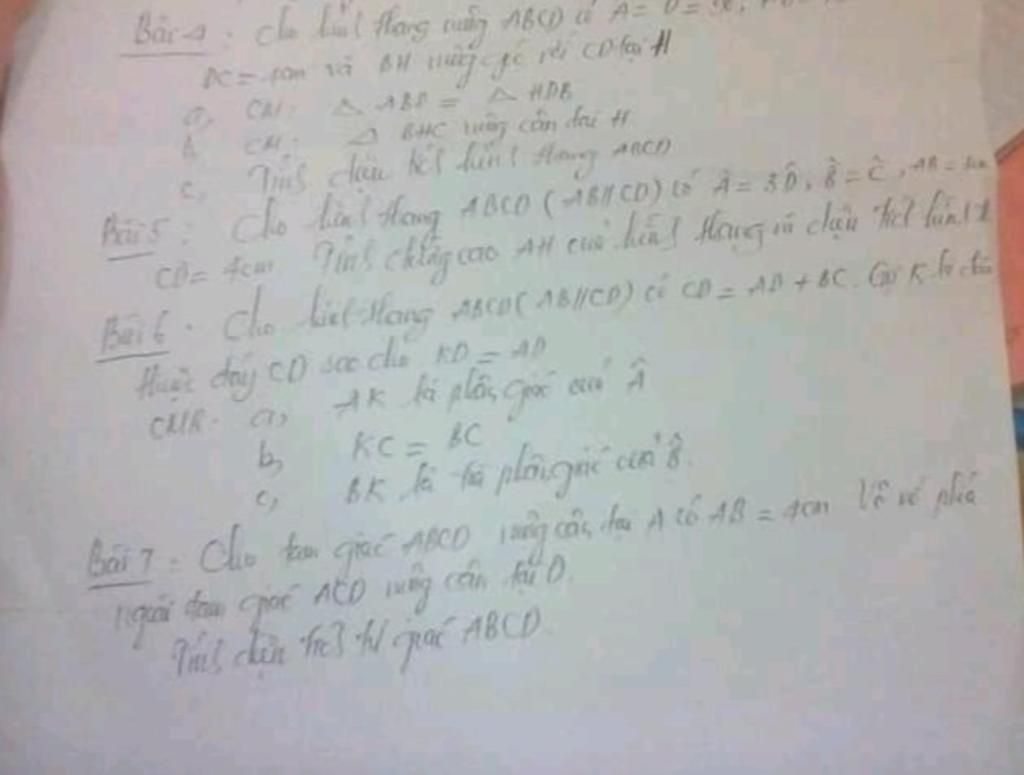 Bài 4: Cho hình thang vuông ABCD có A = D = 90,
DC = cm và BH vuông góc với CD tại H
a, CM: △ ABD = △ HDB
b CM: △ BHC vuông cân tại H
c, Tính diện tích hình thang ABCD
Bài 5: Cho hình thang ABCD (AB//CD) có Â = 3D̂, B̂ = Ĉ, AB =
CD = 4cm Tính đường cao AH của hình thang và diện tích hình
Bài 6. Cho hình thang ABCD (AB//CD) có CD = AD + BC. Gọi K là
thuộc đáy CD sao cho KD = AD
CMR: a, AK là phân giác của Â
b, KC = BC
c, BK là tia phân giác của B̂.
Bài 7: Cho tam giác ABCD vuông cân tại A có AB = 4cm Vẽ về phía
ngoài tam giác ACD vuông cân tại D.
Tính diện tích tứ giác ABCD.